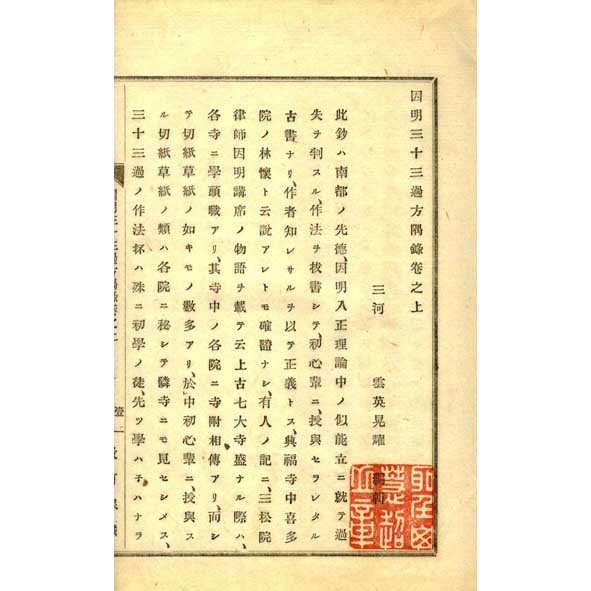 因明三十三過方隅錄卷之上
三河 雲英晃耀 編輯
此鈔ハ南都ノ先德、因明入正理論中ノ似能立ニ就テ過
失ヲ判スル、作法ヲ抜書シテ、初心輩ニ、授與セラレタル
古書ナリ、作者知レサルヲ以テ正義トス、興福寺中喜多
院ノ林懷ト云説アレトモ確證ナシ、有人ノ記ニ、三松院
律師因明講席ノ物語ヲ載テ云上古七大寺盛ナル際ハ、
各寺ニ學頭職アリ、其寺中ノ各院ニ寺附相傳アリ、而シ
テ切紙草紙ノ如キモノ數多アリ、於中初心輩ニ、授與ス
ル切紙草紙ノ類ハ各院ニ秘シテ隣寺ニモ見セシメス、
三十三過ノ作法抔ハ殊ニ初學ノ徒、先ツ學ハ子ハナラ